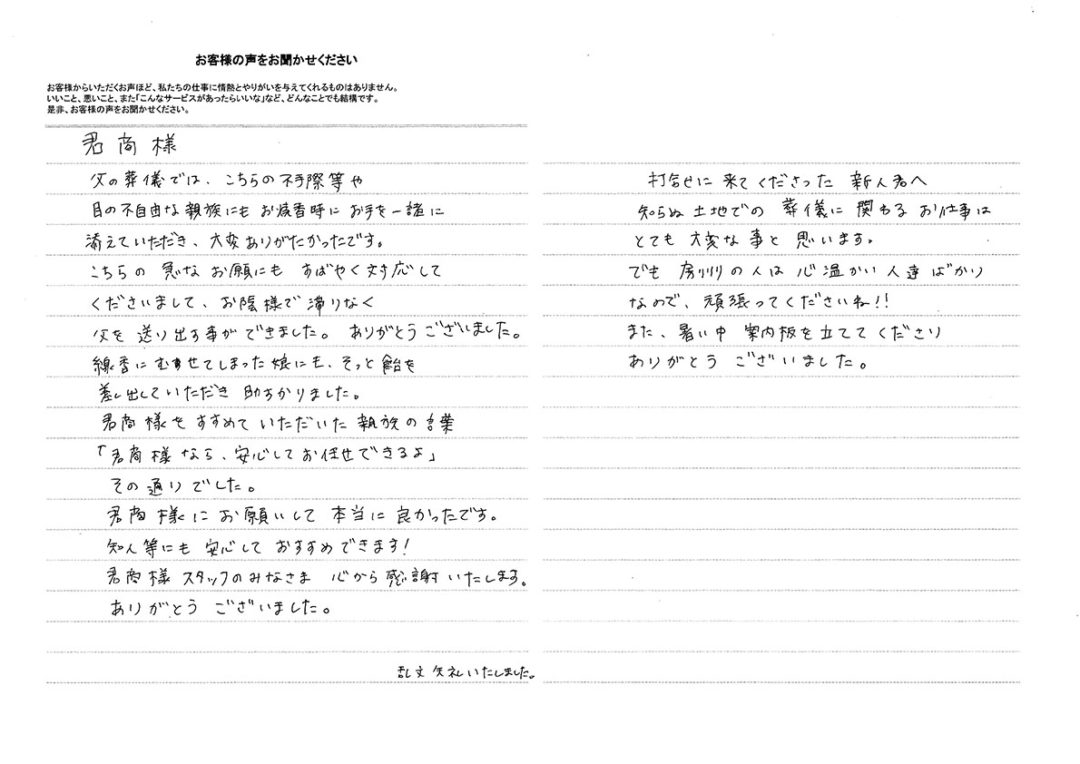 お客様の声をお聞かせください
お客様からいただくお声ほど、私たちの仕事に情熱とやりがいを与えてくれるものはありません。
いいこと、悪いこと、また「こんなサービスがあったらいいな」など、どんなことでも結構です。
是非、お客様の声をお聞かせください。
君商様
父の葬儀では、こちらの不手際等や
目の不自由な親族にもお焼香時にお手を一諸に
添えていただき、大変ありがたかったです。
こちらの急なお願にもすばやく対応して
くださいまして、お陰様で滞りなく
父を送り出す事ができました。ありがとうございました。
線香にむせてしまった娘にも、そっと飴を
差し出していただき助かりました。
君商様をすすめていただいた親族の言葉
「君商様なら、安心してお任せできるよ」
その通りでした。
君商様にお願いして本当に良かったです。
知人等にも安心しておすすめできます!
君商様スタッフのみなさま心から感謝いたします。
ありがとうございました。
乱文失礼いたしました。
打合せに来てくださった新人君へ
知らぬ土地での葬儀に関わるお仕事は
とても大変な事と思います。
でも房州の人は心温かい人達ばかり
なので、頑張ってくださいね!!
また、暑い中案内板を立ててくださり
ありがとうございました。